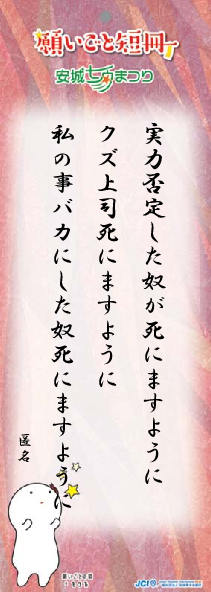 願いごと短冊
安城七夕まつり
実力否定した奴が死にますように
クズ上司死にますように
私の事バカにした奴死にますように
匿名
願いごと短冊
JCI